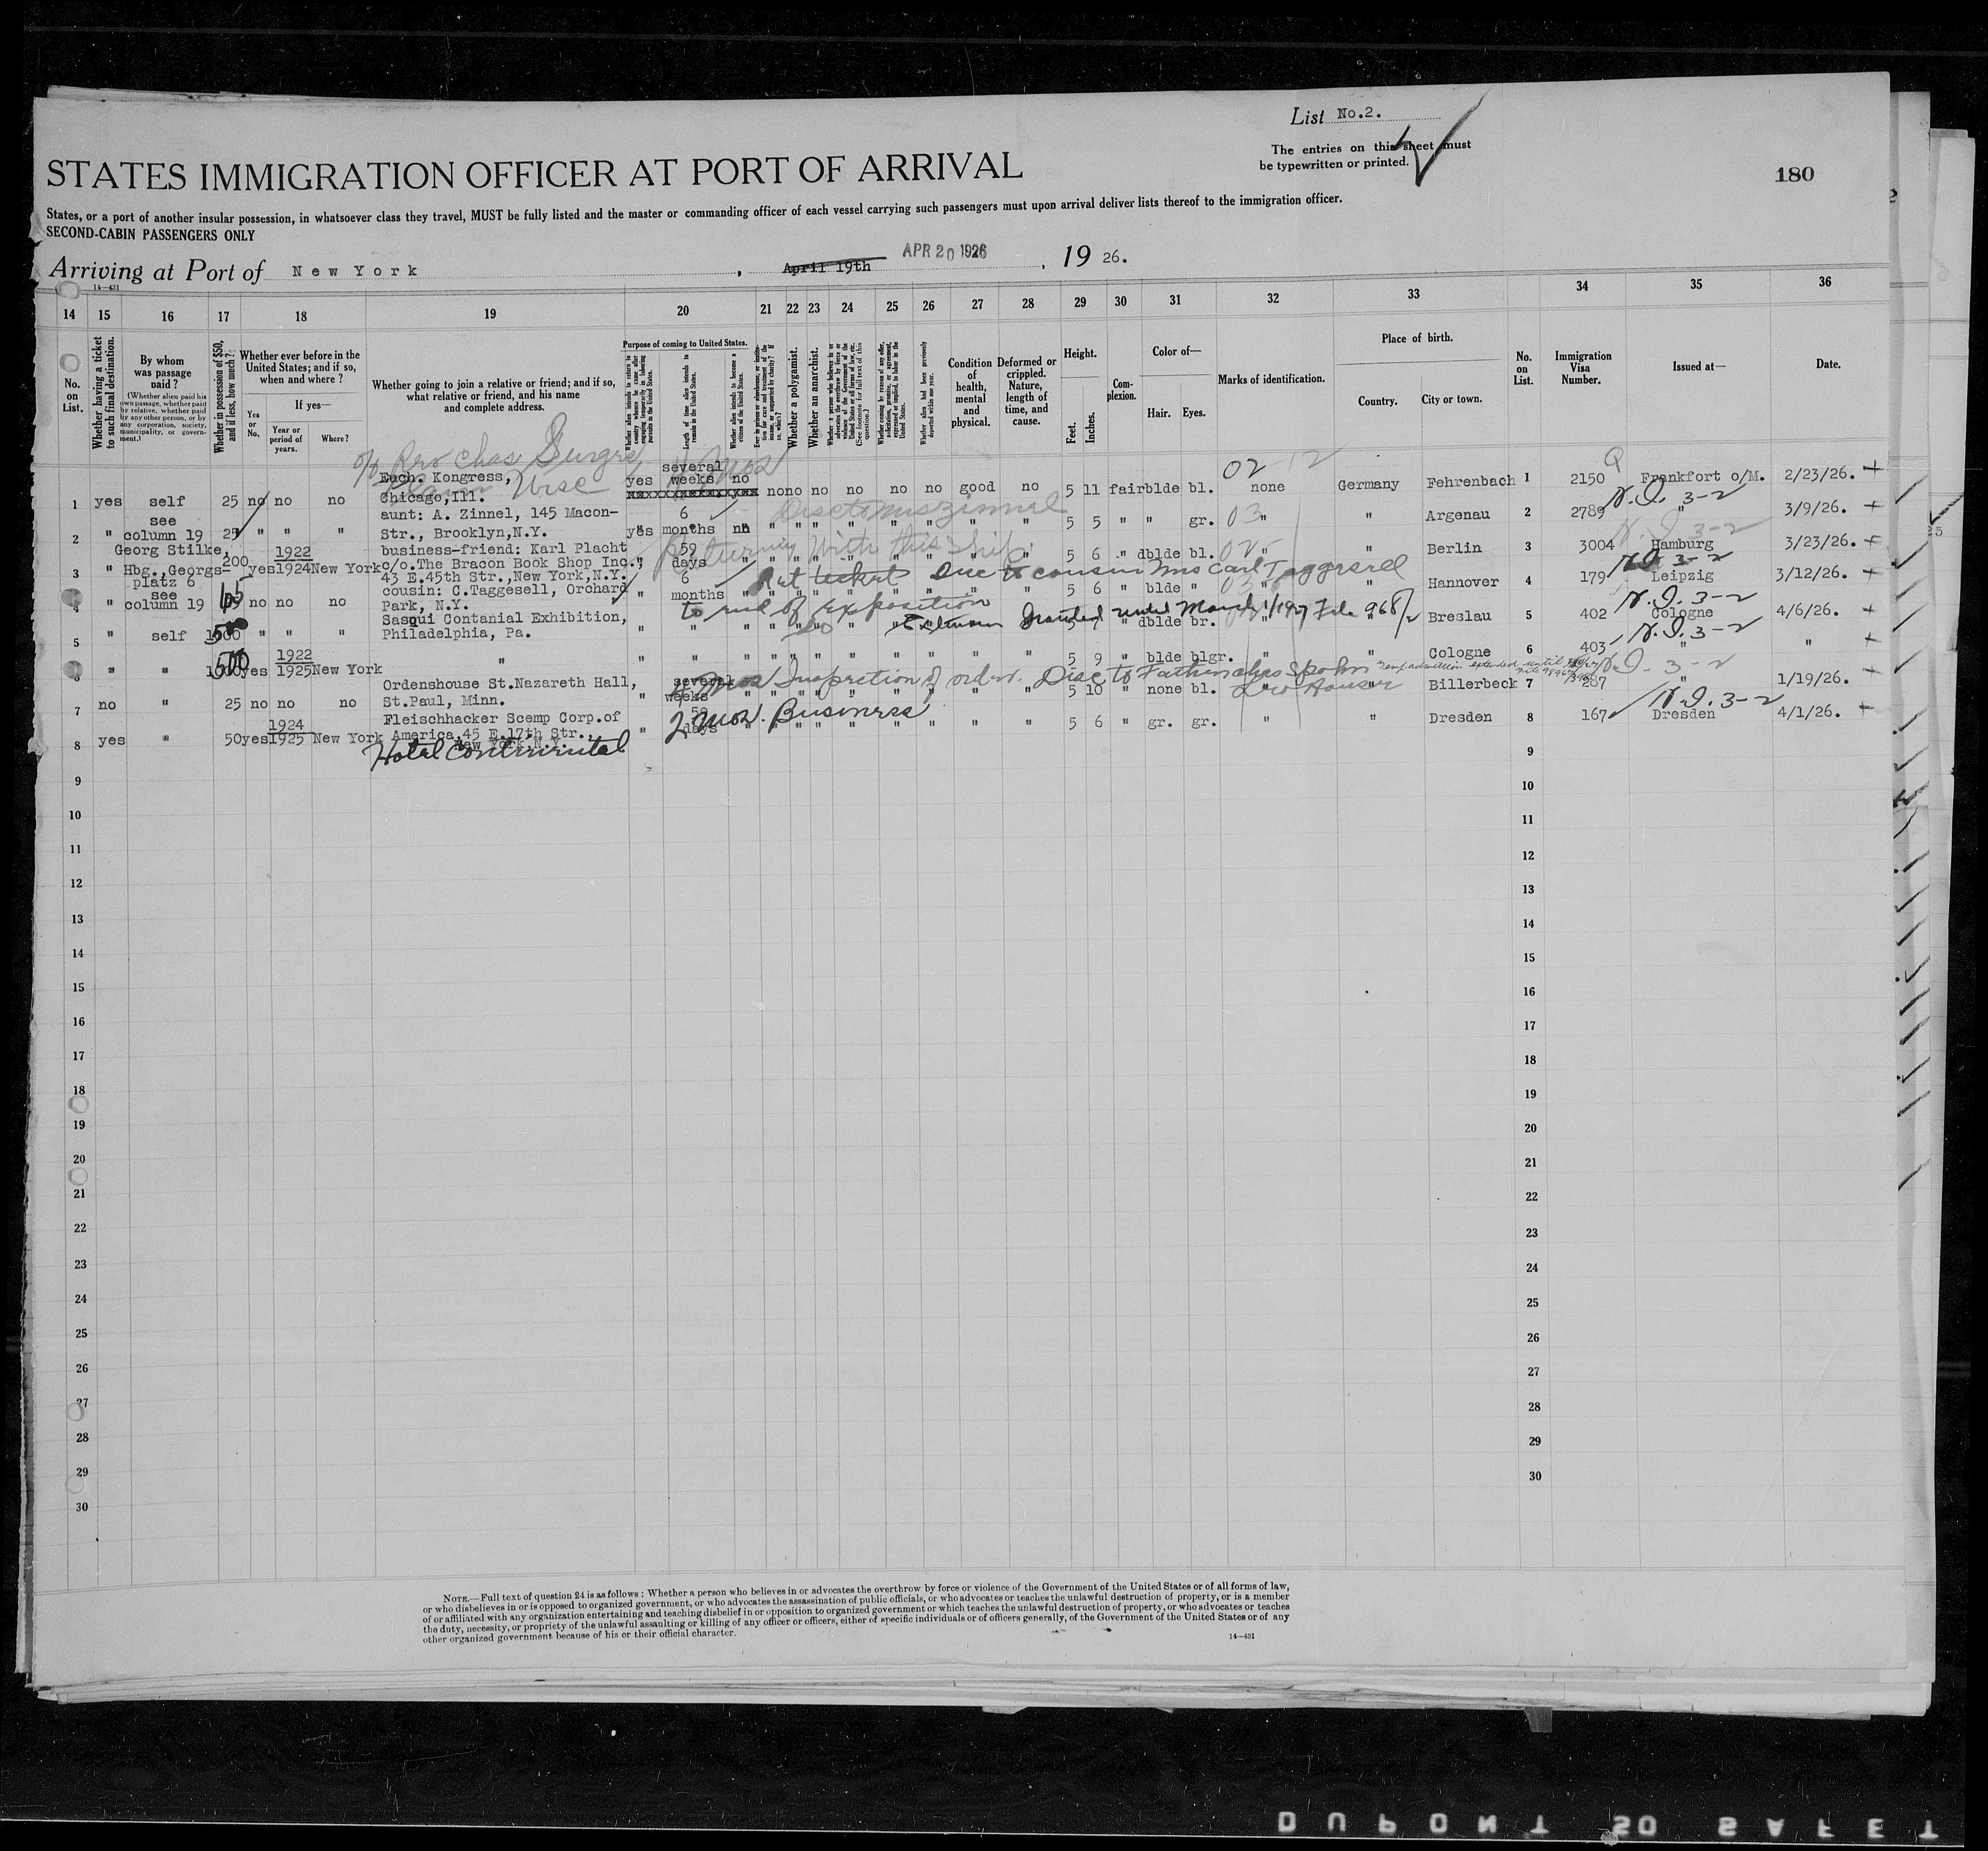 List No.2.
The entries on this sheet must
be typewritten or printed.
180
STATES IMMIGRATION OFFICER AT PORT OF ARRIVAL
States, or a port of another insular possession, in whatsoever class they travel, MUST be fully listed and the master or commanding officer of each vessel carrying such passengers must upon arrival deliver lists thereof to the immigration officer.
SECOND-CABIN PASSENGERS ONLY
Arriving at Port of New York, April 19th APR 20 1926, 19 26.
14—431
14 15 16 17 18 19 20 21 22 23 24 25 26 27 28 29 30 31 32 33 34 35 36
No. on List.
Whether having a ticket to such final destination.
By whom was passage paid?
(Whether alien paid his own passage, whether paid by relative, whether paid by any other person, or by any corporation, society, municipality, or government.)
Whether in possession of $50, and if less, how much?
Whether ever before in the United States; and if so, when and where?
If yes—
Yes or No.
Year or period of years.
Where?
Whether going to join a relative or friend; and if so, what relative or friend, and his name and complete address.
Purpose of coming to United States.
Length of time alien intends to remain in the United States.
Whether alien intends to become a citizen of the United States.
Whether a polygamist.
Whether an anarchist.
Condition of health, mental and physical.
Deformed or crippled. Nature, length of time, and cause.
Height.
Feet. Inches.
Complexion.
Color of—
Hair. Eyes.
Marks of identification.
Place of birth.
Country. City or town.
No. on List.
Immigration Visa Number.
Issued at—
Date.
1 yes self 25 no no no Euch. Kongress, Chicago,Ill. yes several weeks no no no no no no no good no 5 11 fair blde bl. none Germany Fehrenbach 1 2150 Frankfort o/M. 2/23/26.
2 " see column 19 25 " " " aunt: A. Zinnel, 145 Macon-Str., Brooklyn,N.Y. yes 6 months no " " " " " " " " 5 5 " " gr. " " Argenau 2 2789 " 3/9/26.
3 " Georg Stilke, Hbg.,Georgs-platz 6 200 yes 1922 1924 New York business-friend: Karl Placht c/o.The Bracon Book Shop Inc., 43 E.45th Str.,New York,N.Y. " 59 days " " " " " " " " " 5 6 " dblde bl. " " Berlin 3 3004 Hamburg 3/23/26.
4 " see column 19 65 no no no cousin: C.Taggesell, Orchard Park, N.Y. " 6 months " " " " " " " " " 5 6 " blde " " " Hannover 4 179 Leipzig 3/12/26.
5 " self 500 " " " Sasqui Contanial Exhibition, Philadelphia, Pa. " " " " " " " " " 5 7 " dblde br. " " Breslau 5 402 Cologne 4/6/26.
6 " " 500 yes 1922 1925 New York " " " " " " " " " " " 5 9 " blde blgr. " " Cologne 6 403 " "
7 no " 25 no no no Ordenshouse St.Nazareth Hall, St.Paul, Minn. " several weeks " " " " " " " " 5 10 " none bl. " " Billerbeck 7 287 " 1/19/26.
8 yes " 50 yes 1924 1925 New York Fleischhacker Scemp Corp.of America,45 E.17th Str., New York,N.Y. " 59 days " " " " " " " " 5 6 " gr. gr. " " Dresden 8 167 Dresden 4/1/26.
Returning with this ship
Disc to cousin Mrs Carl Taggesell
to end of exposition
Extension Granted until March 1/1927 File 968/2
4 mos Inspection of order. Disc to Father Chas Spohn
2 mos. Business
Hotel Continental
N.I. 3-2
N.I. 3-2
N.I. 3-2
N.I. 3-2
N.I. 3-2
N.I. 3-2
N.I. 3-2
9
10
11
12
13
14
15
16
17
18
19
20
21
22
23
24
25
26
27
28
29
30
NOTE.—Full text of question 24 is as follows: Whether a person who believes in or advocates the overthrow by force or violence of the Government of the United States or of all forms of law,
or who disbelieves in or is opposed to organized government, or who advocates the assassination of public officials, or who advocates or teaches the unlawful destruction of property, or is a member
of or affiliated with any organization entertaining and teaching disbelief in or opposition to organized government or which teaches the unlawful destruction of property, or who advocates or teaches
the duty, necessity, or propriety of the unlawful assaulting or killing of any officer or officers, either of specific individuals or of officers generally, of the Government of the United States or of any
other organized government because of his or their official character.
14—431
DUPONT SO SAFET